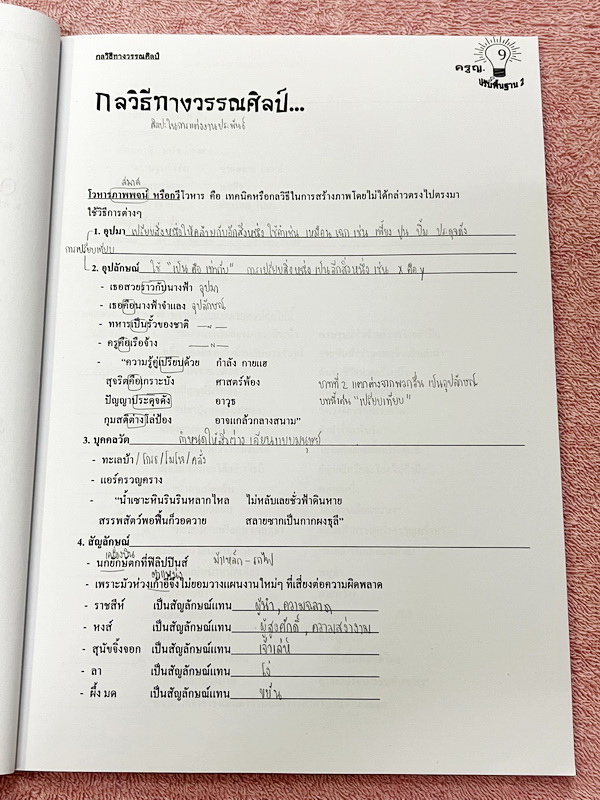 กลวิธีทางวรรณศิลป์
9
ครูญ.
ปรับพื้นฐาน 2
กลวิธีทางวรรณศิลป์...
ศิลปะในการแต่งงานประพันธ์
สมาส
โวหารภาพพจน์ หรือกวีโวหาร คือ เทคนิคหรือกลวิธีในการสร้างภาพโดยไม่ได้กล่าวตรงไปตรงมา
ใช้วิธีการต่างๆ
1. อุปมา เปรียบสิ่งหนึ่งให้คล้ายกับอีกสิ่งหนึ่ง ใช้คำเช่น เหมือน เฉก เช่น เพี้ยง ปูน ปั้ม ประดุจดัง
การเปรียบเทียบ
2. อุปลักษณ์ ใช้ "เป็น คือ เท่ากับ" การเปรียบสิ่งหนึ่ง เป็นอีกสิ่งหนึ่ง เช่น x คือ y
- เธอสวยราวกับนางฟ้า อุปมา
- เธอคือนางฟ้าจำแลง อุปลักษณ์
- ทหารเป็นรั้วของชาติ —"—
- ครูคือเรือจ้าง —"—
- "ความรู้คู่เปรียบด้วย กำลัง กายแฮ
สุจริตคือเกราะบัง ศาสตร์พ้อง บาทที่ 2 แตกต่างจากพวกอื่น เป็นอุปลักษณ์
ปัญญาประดุจดัง อาวุธ บาทอื่น "เปรียบเทียบ"
กุมสติต่างโล่ป้อง อาจแกล้วกลางสนาม"
3. บุคคลวัต กำหนดให้สิ่งต่างๆ เลียนแบบมนุษย์
- ทะเลบ้า/โกรธ/โมโห/คลั่ง
- แอร์ครวญคราง
- "น้ำเซาะหินรินรินหลากไหล ไม่หลับเลยชั่วฟ้าดินหาย
สรรพสัตว์พอฟื้นก็วอดวาย สลายซากเป็นกากผงธุลี"
4. สัญลักษณ์
เครื่องบิน
- นกยักษ์ตกที่ฟิลิปปินส์ ม้าเหล็ก - รถไฟ
ตำแหน่ง
- เพราะมัวห่วงเก้าอี้จึงไม่ยอมวางแผนงานใหม่ๆ ที่เสี่ยงต่อความผิดพลาด
- ราชสีห์ เป็นสัญลักษณ์แทน ผู้นำ, ความฉลาด
- หงส์ เป็นสัญลักษณ์แทน ผู้สูงศักดิ์, ความสง่างาม
- สุนัขจิ้งจอก เป็นสัญลักษณ์แทน เจ้าเล่ห์
- ลา เป็นสัญลักษณ์แทน โง่
- ผึ้ง มด เป็นสัญลักษณ์แทน ขยัน